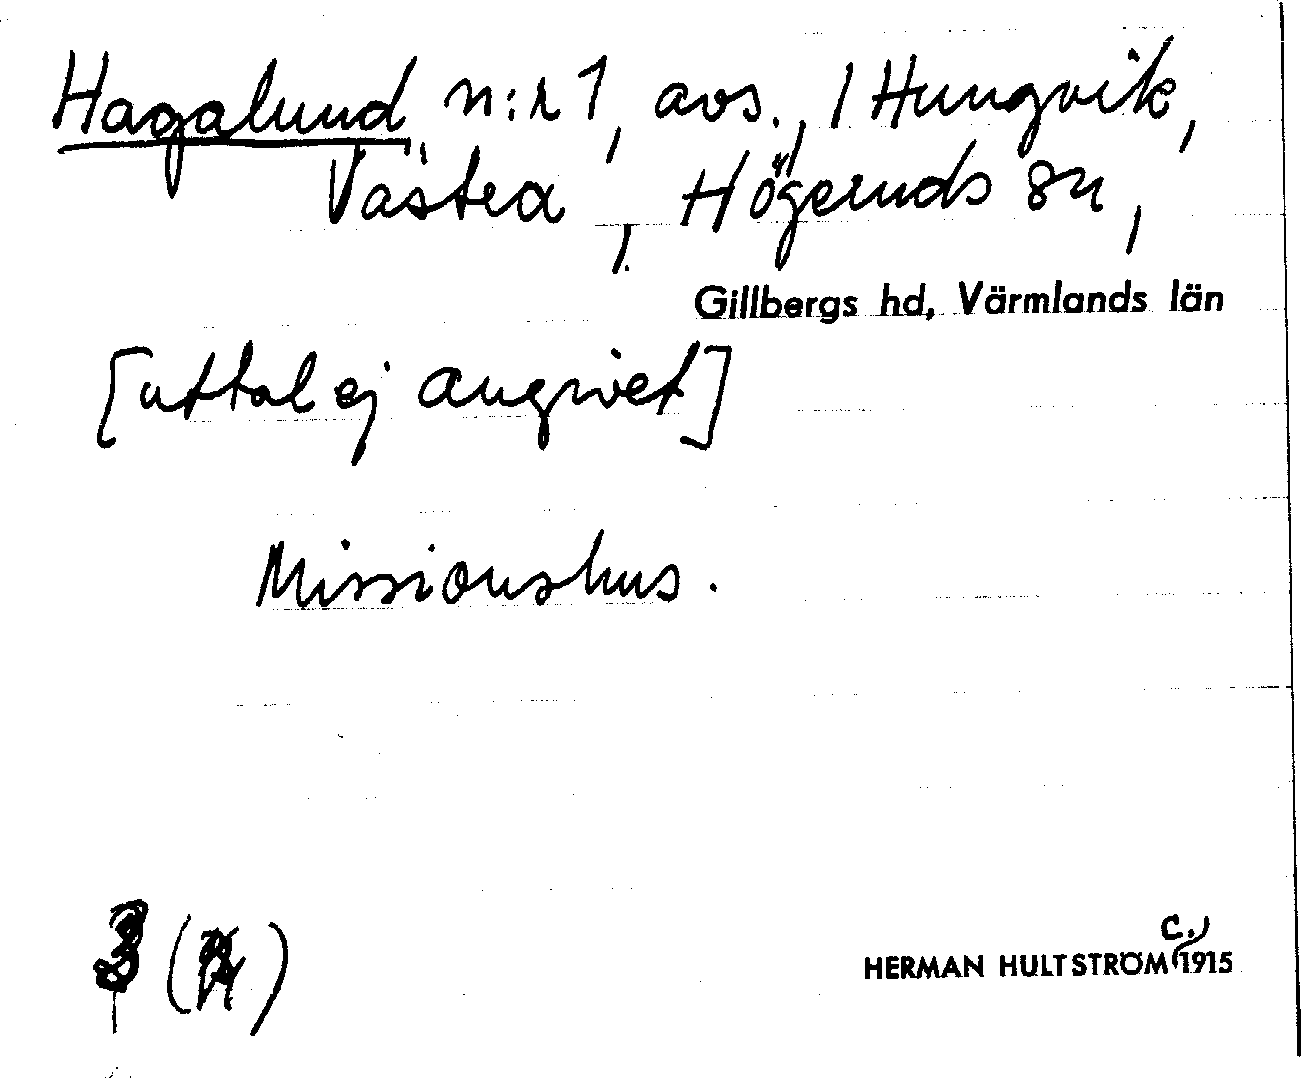 Hagalund n:r 1, avs., / Hungvik,
Västra, Högeruds sn,
Gillbergs hd, Värmlands län
[uttal ej angivet]
Missionshus.
3 ( )
c.
HERMAN HULTSTRÖM 1915